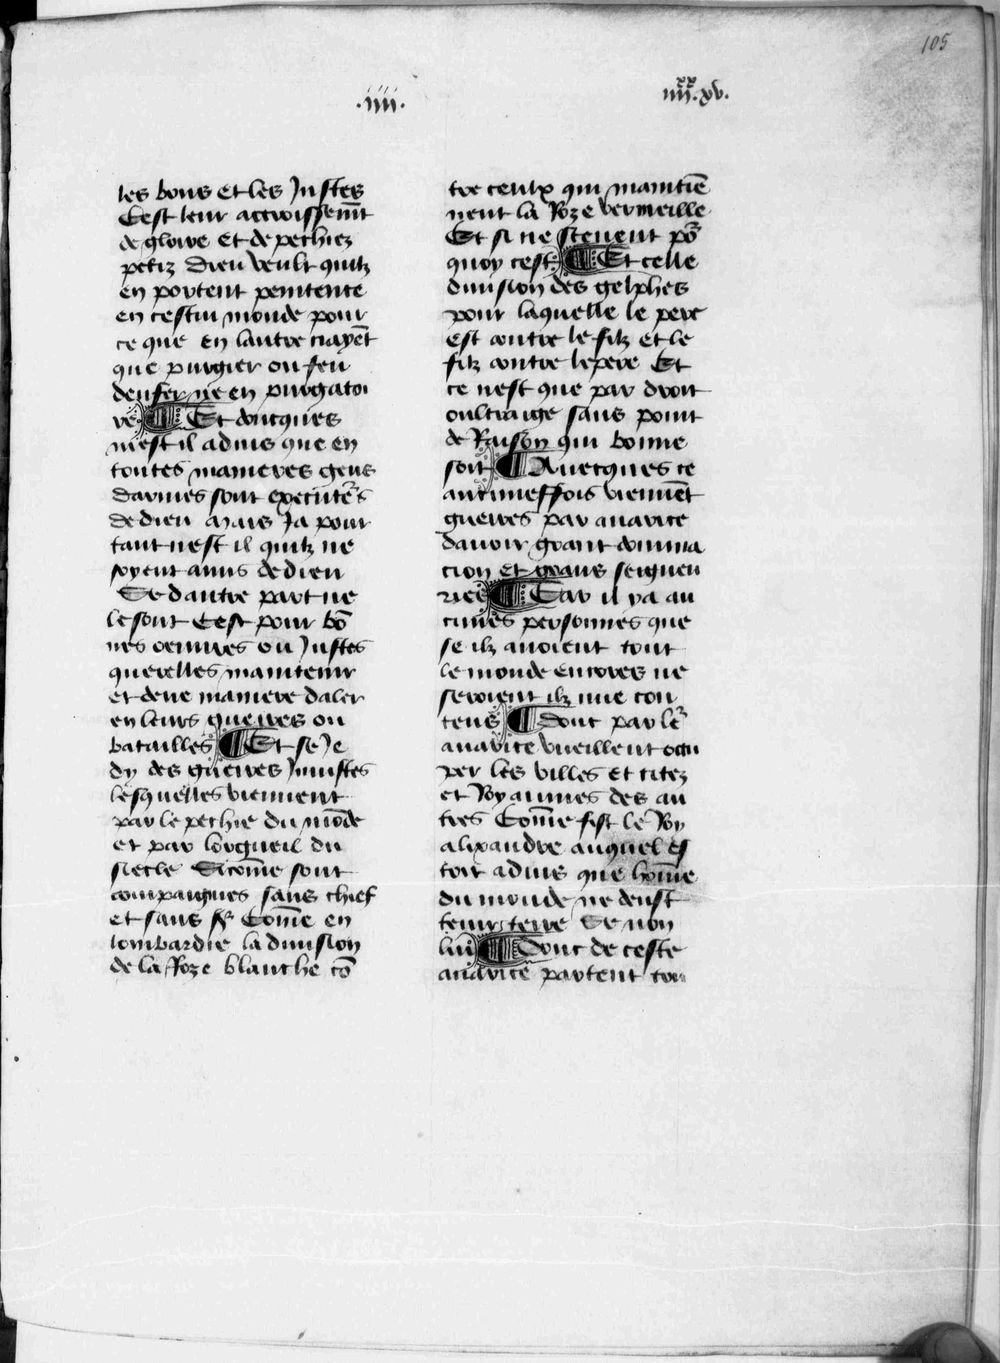 105
.iiii.
iiii.xx xv.
les bons et les Justes
Cest leur accroissemt̄
de gloire et de pechiez
petiz Dieu veult quilz
en portent penitence
en cestui monde pour
ce que en lautre nayēt
que purgier ou feu
denfer ne en purgatoi
re ¶ Et doncques
mest il aduis que en
toutes manieres gens
darmes sont executeˀs
de dieu Mais Ja pour
tant nest il quilz ne
soyent amis de dieu
Se dautre part ne
le sont Cest pour bō
nes oeuures ou Justes
querelles maintenir
et deue maniere daler
en leurs guerres ou
batailles ¶ Et se Je
dy des guerres Jniustes
lesquelles viennent
par le pechie du mōde
et par lorgueil du
siecle Sicōme sont
compaignes sans chief
et sans Cōme en
lombardie la diuision
de la Roze blanche cō
tre ceulx qui maintiē
nent la Roze vermeille
Et si ne sceuent poˀ
quoy cest ¶ Et celle
diuision des gelphes
pour laquelle le pere
est contre le filz et le
filz contre le pere Et
ce nest que par droit
oultraige sans point
de Raison qui bonne
soit ¶ Auecques ce
aucuneffois viennēt
guerres par auarice
dauoir grant domina
cion et grans seigneu
ries ¶ Car il ya au
cunes personnes que
se ilz auoient tout
le monde encores ne
seroient ilz mie con
tens ¶ Donc par leˀ
auarice vueillent occu
per les villes et citez
et Royaumes des au
tres Cōme fist le Roy
alixandre auquel es
toit aduis que hōme
du monde ne deust
tenir terre Se non
lui ¶ Donc de ceste
auarice partent tou